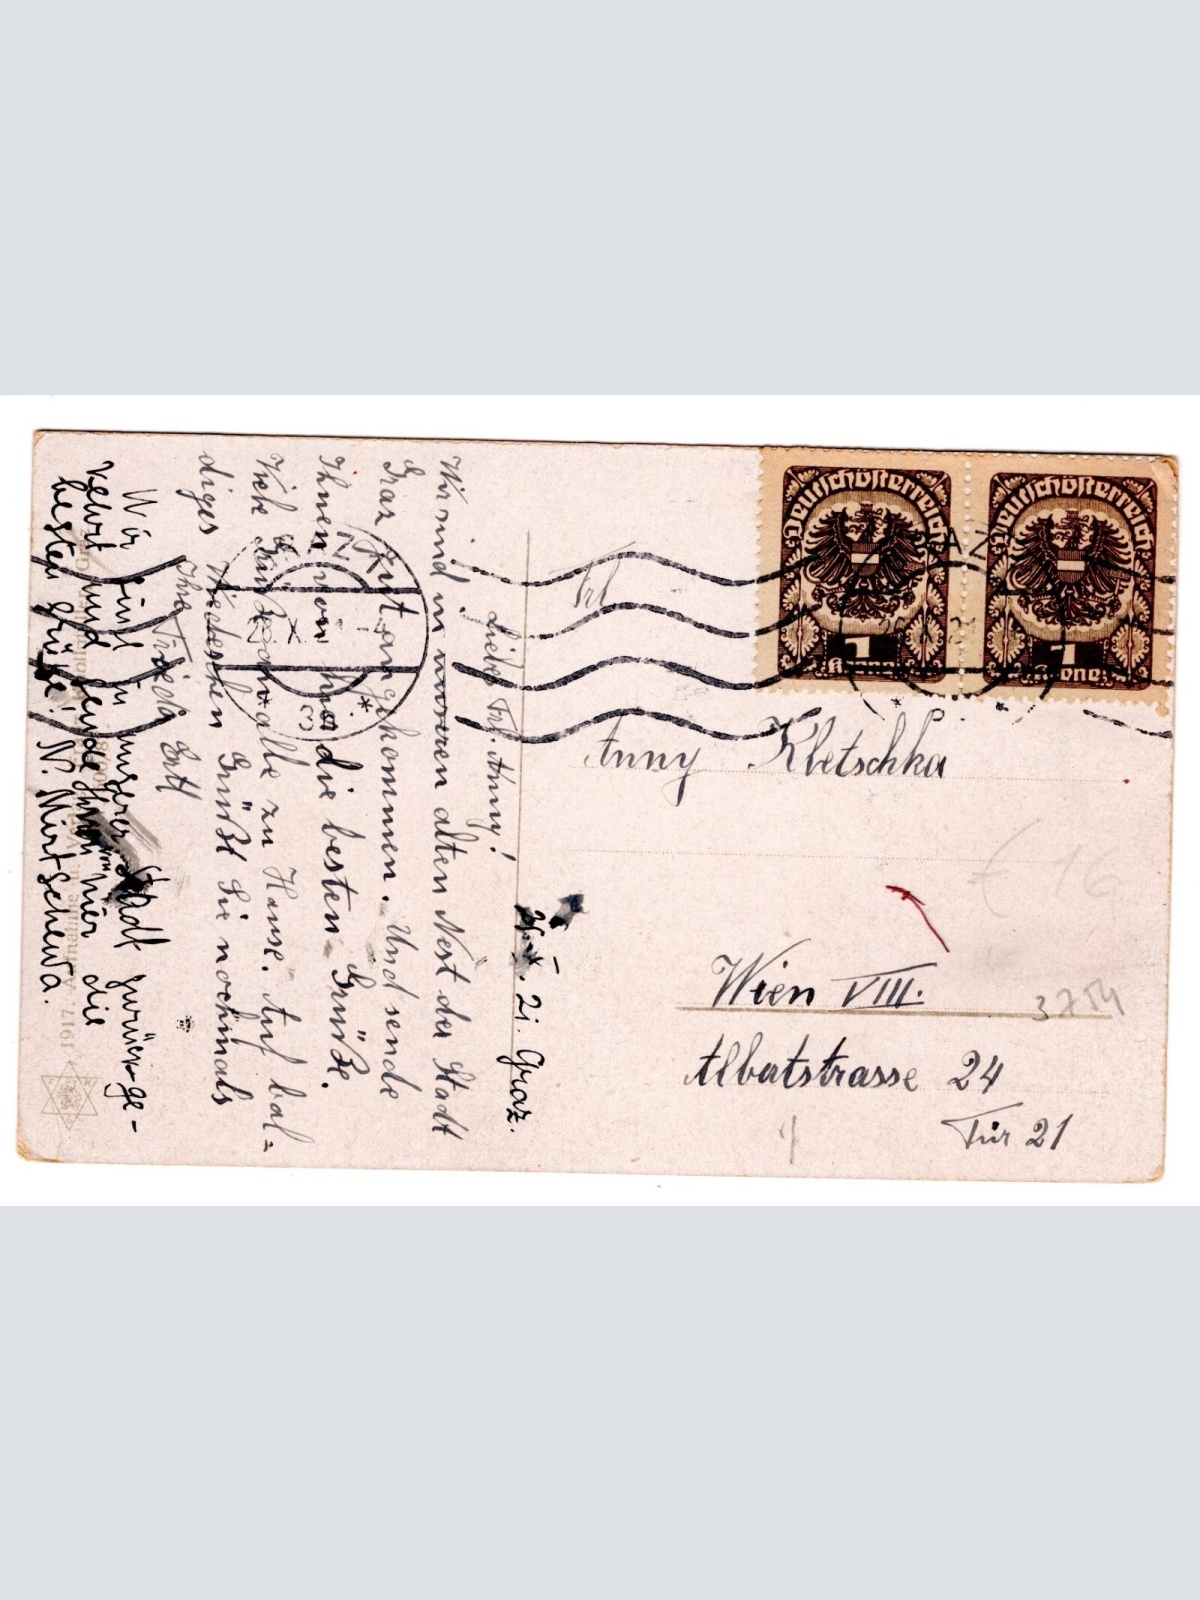 Deutschösterreich
1
Krone
Deutschösterreich
1
Krone
GRAZ
Frl
Anny Kletschka
Wien VIII.
Albertstrasse 24
Tür 21
€ 16
3754
X. 21. Graz.
Liebe Frl. Anny!
Wir sind in unseren alten Nest der Stadt
Graz gut angekommen. Und sende
Ihnen von hier die besten Grüße.
Viele Grüße an alle zu Hause. Auf bal=
diges Wiedersehen Grüßt Sie nochmals
Ihre
Wir sind zu unserer Stadt zurückge-
kehrt und sende Ihnen von hier die
besten Grüße! N.
1917.